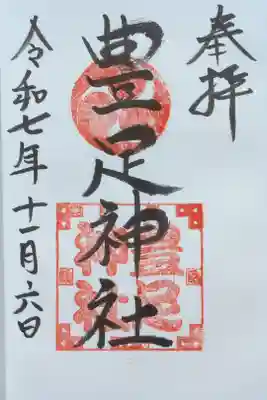 奉拝
豊足神社
令和七年十一月六日